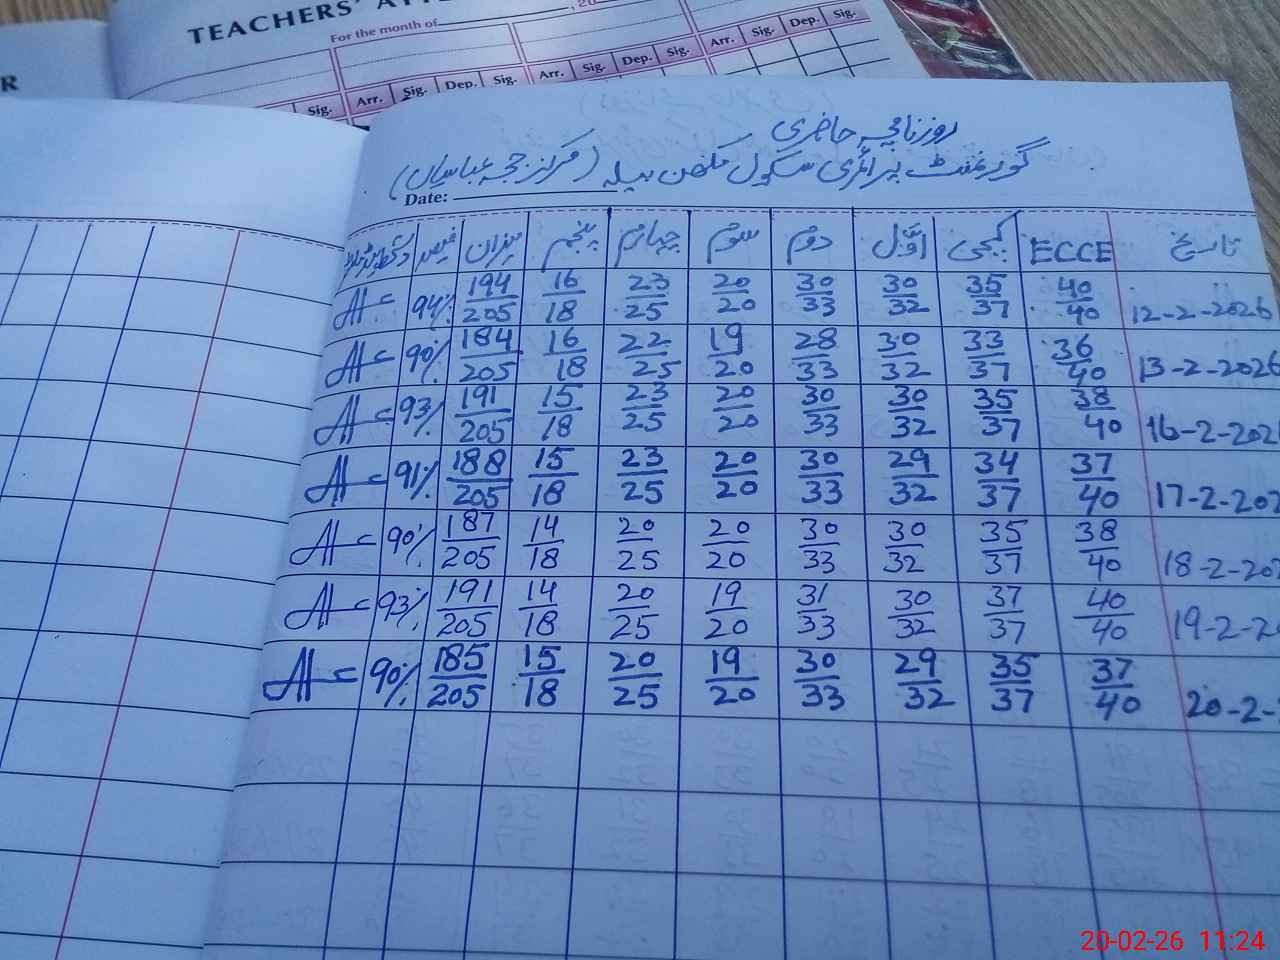 TEACHERS'
For the month of
, 20
R
Arr. Sig. Dep. Sig.
Sig. Arr. Sig. Dep. Sig. Arr. Sig. Dep.
روزنامچہ حاضری
گورنمنٹ پرائمری سکول مکھن بیلہ (مرکز ججہ عباسیاں)
Date:
تاریخ ECCE کچی اوّل دوم سوم چہارم پنجم میزان فیصد دستخط
12-2-2026 40/40 35/37 30/32 30/33 20/20 23/25 16/18 194/205 94%
13-2-2026 36/40 33/37 30/32 28/33 19/20 22/25 16/18 184/205 90%
16-2-202 38/40 35/37 30/32 30/33 20/20 23/25 15/18 191/205 93%
17-2-202 37/40 34/37 29/32 30/33 20/20 23/25 15/18 188/205 91%
18-2-202 38/40 35/37 30/32 30/33 20/20 20/25 14/18 187/205 90%
19-2-2 40/40 37/37 30/32 31/33 19/20 20/25 14/18 191/205 93%
20-2- 37/40 35/37 29/32 30/33 19/20 20/25 15/18 185/205 90%
20-02-26 11:24